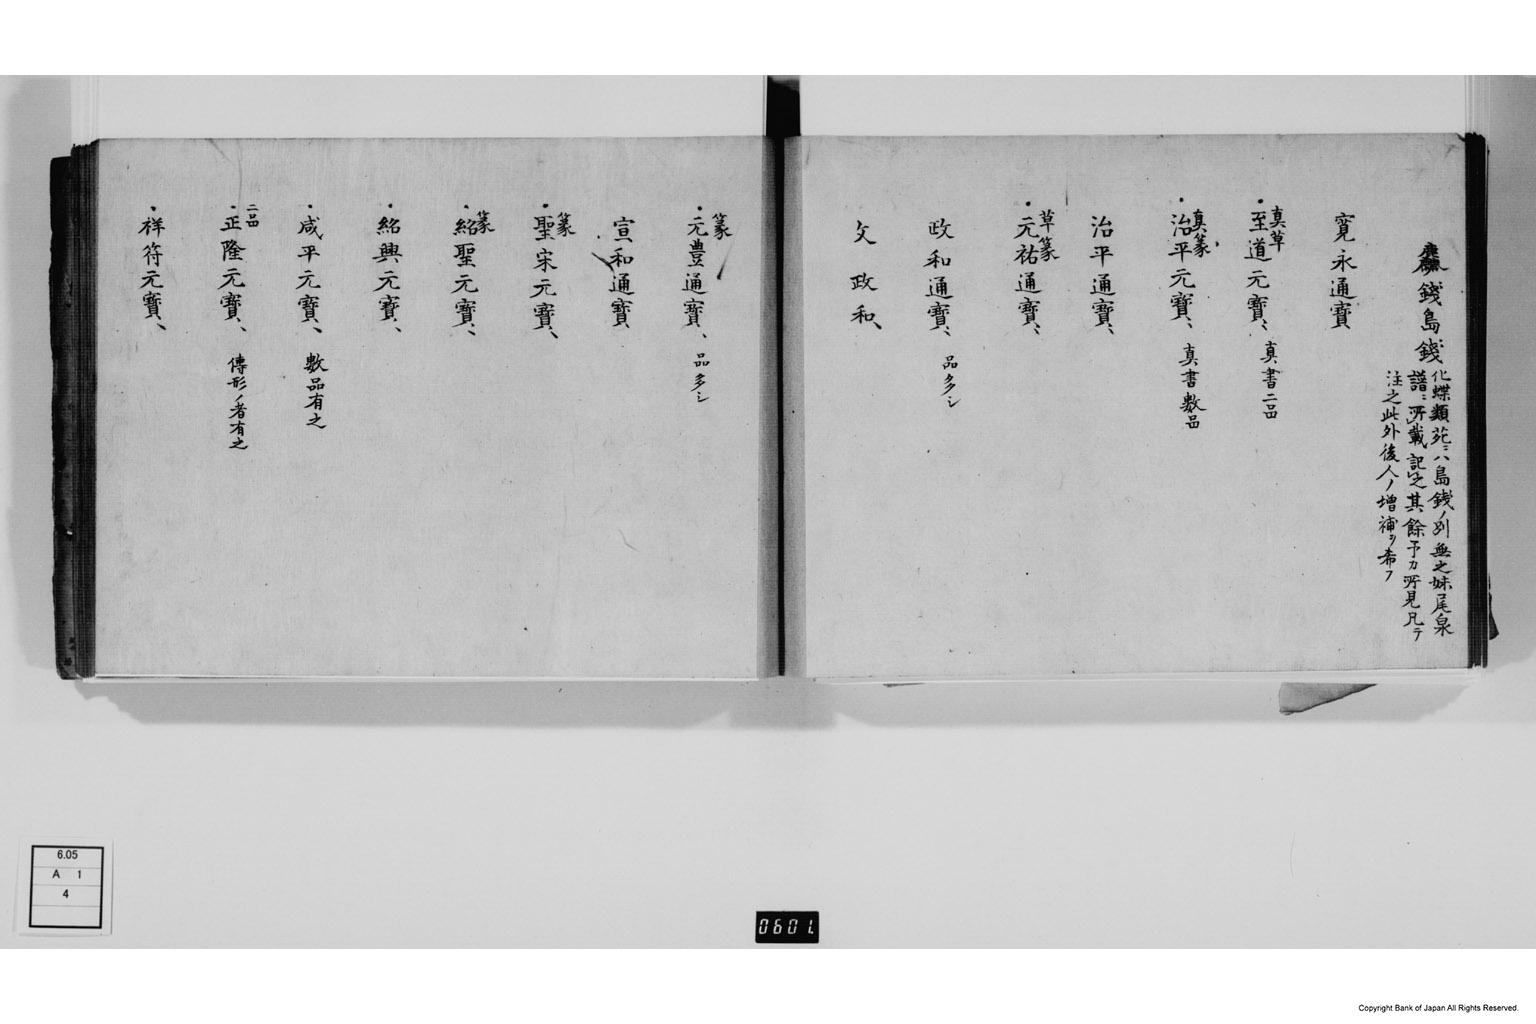 錢島錢
化蝶類苑ニハ島錢ノ別無之妹尾泉
譜ニ所載記之其餘予カ所見凡テ
注之此外後人ノ増補ヲ希フ
寛永通寳
真草
・至道元寳、 真書二品
真篆
・治平元寳、 真書數品
治平通寳、
草篆
・元祐通寳、
政和通寳、 品多シ
文政和、
篆
・元豊通寳、 品多シ
宣和通寳
篆
・聖宋元寳、
篆
・紹聖元寳、
・紹興元寳、
・咸平元寳、 數品有之
二品
・正隆元寳、 傳形ノ者有之
・祥符元寳、
6.05
A 1
4
0601
Copyright Bank of Japan All Rights Reserved.